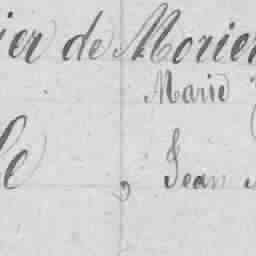 ier de Morier
Marie
le , Jean